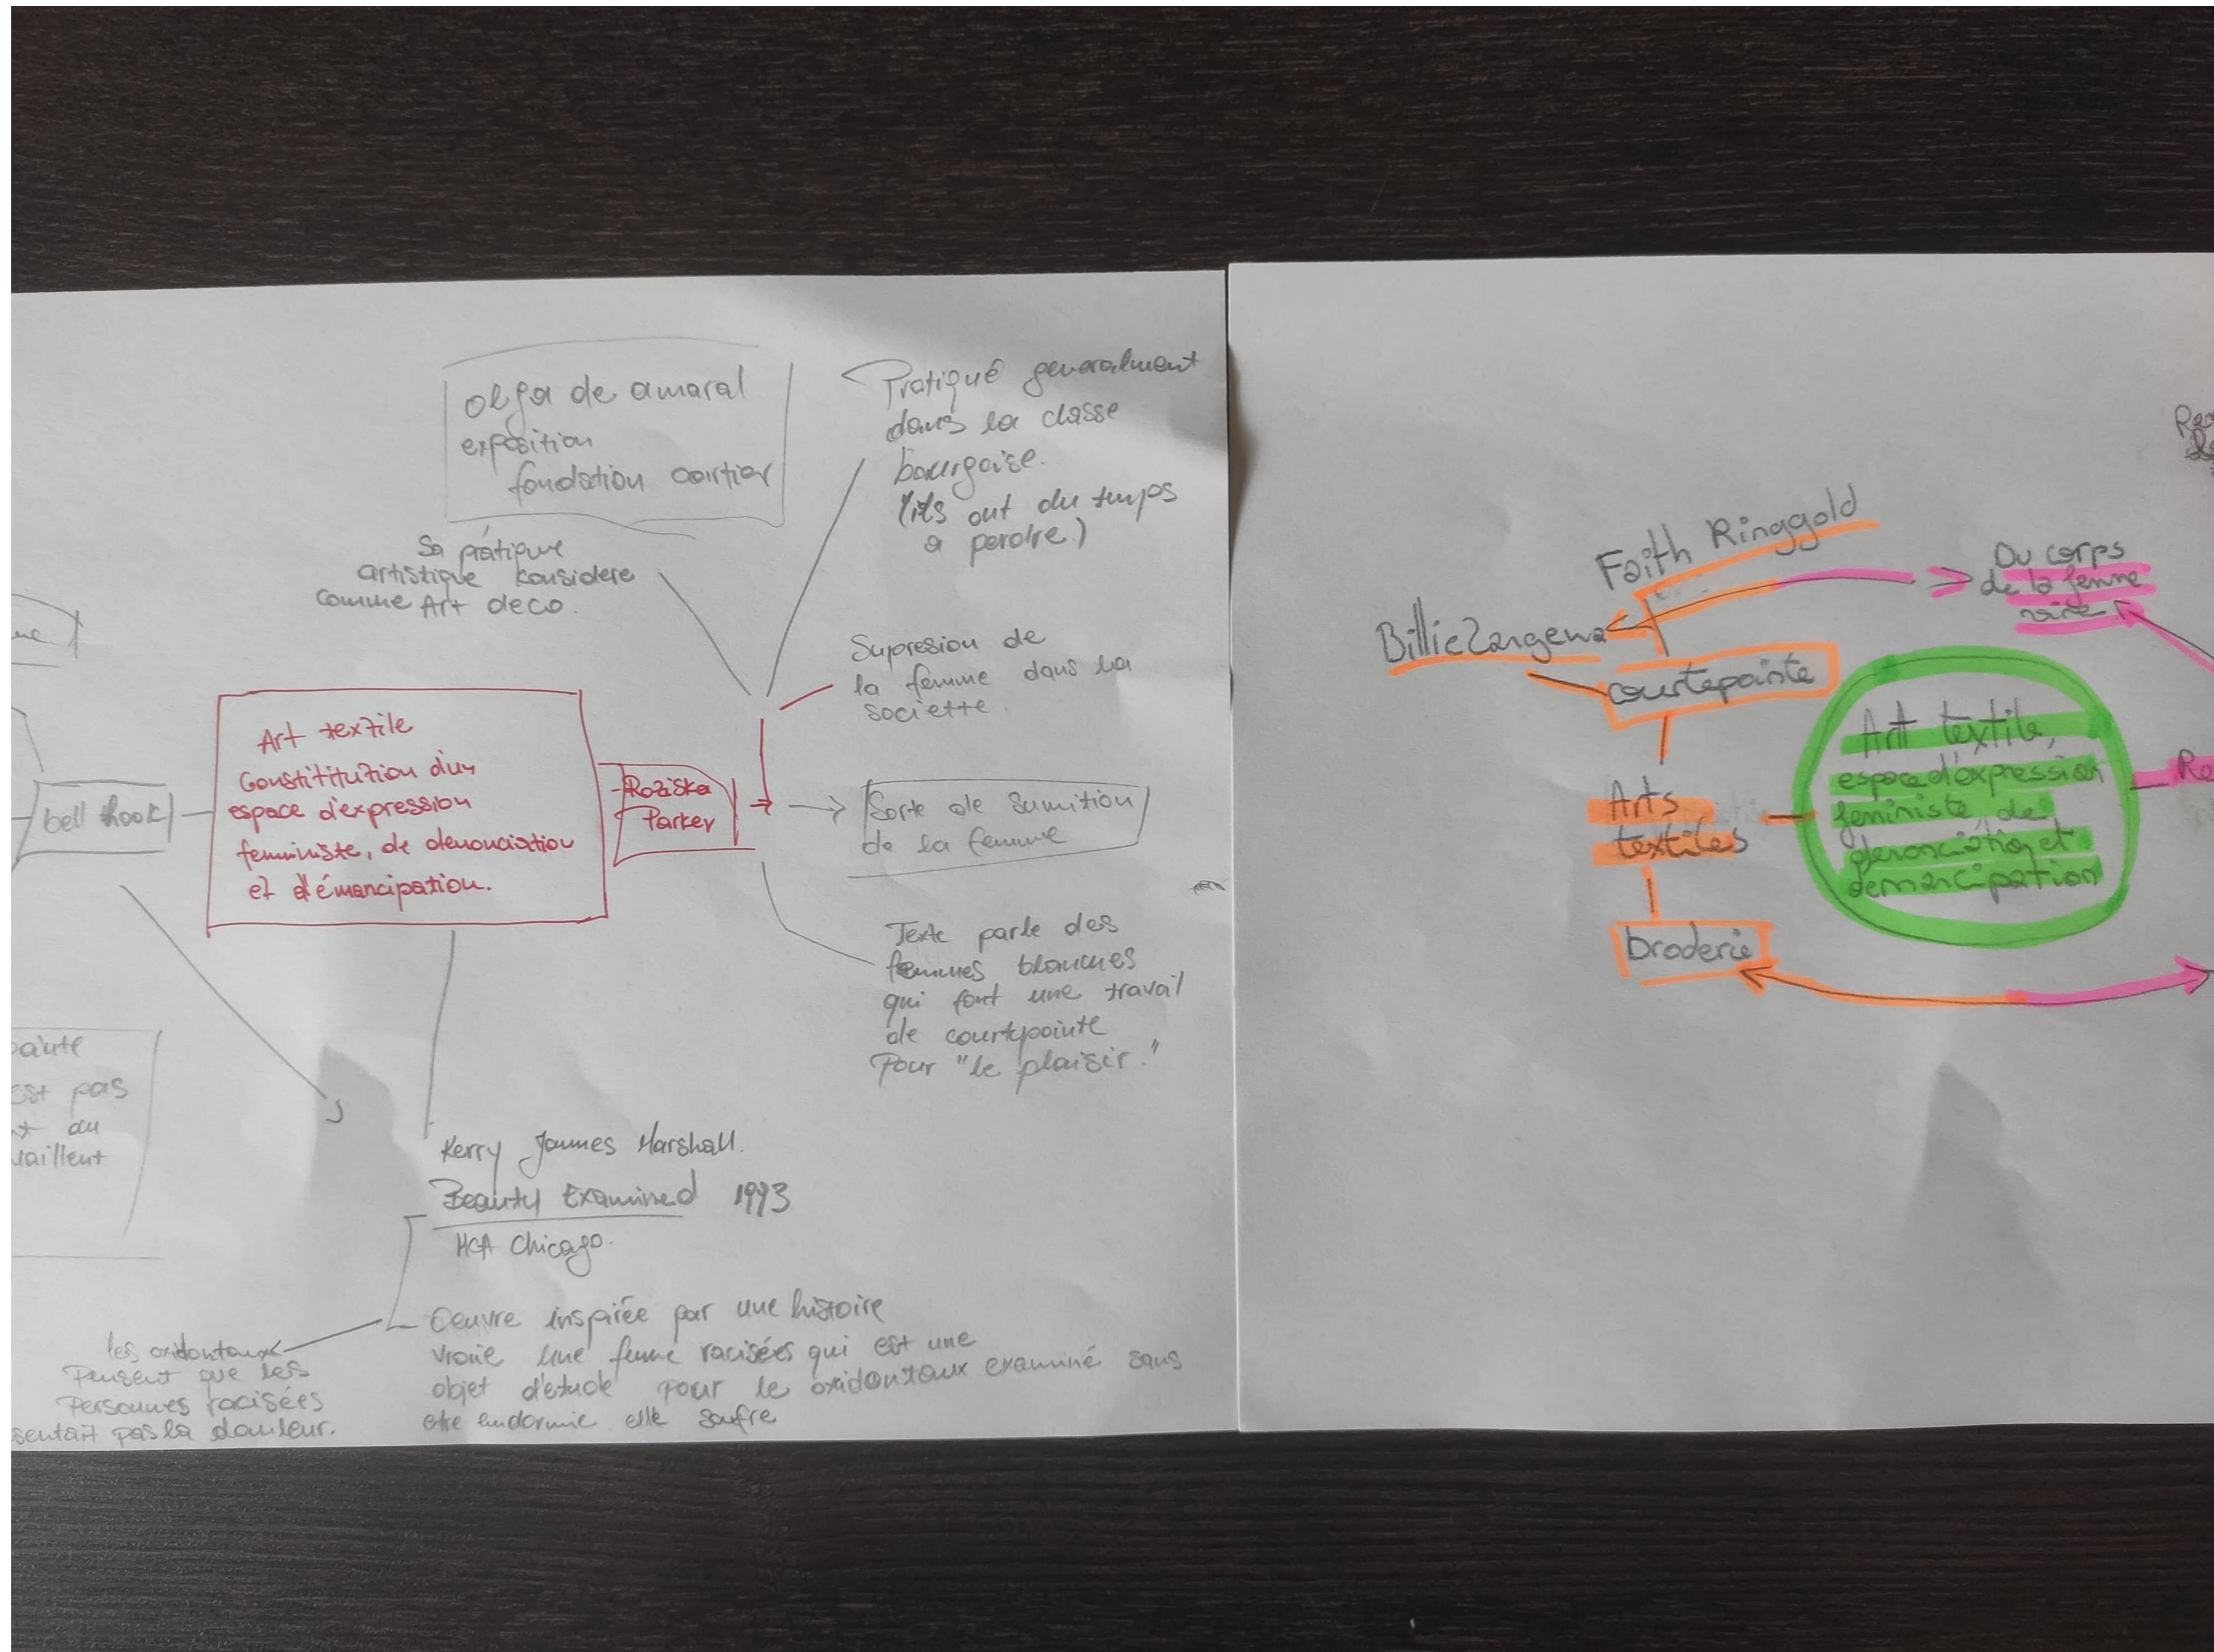 olga de amaral
exposition
fondation cartier
Sa prátique
artistique considere
comme Art deco.
Pratiqué generalment
dans la classe
bourgoise.
(ils ont du temps
a perdre)
Supresion de
la femme dans la
societte.
bell hook
Art textile
Constititution d'un
espace d'expression
feministe, de denonciation
et d'émancipation.
Roziska
Parker
Sorte de sumition
de la femme
Texte parle des
femmes blanches
qui font une travail
de courtepointe
Pour "le plaisir."
est pas
au
vaillent
Kerry James Marshall.
Beauty Examined 1993
MCA Chicago.
Oeuvre inspirée par une histoire
vraie une femme racisées qui est une
objet d'etude pour le oxidontaux examiné sans
etre endormie elle soufre
les oxidontaux
Pensent que les
Personnes racisées
sentait pas la douleur.
Faith Ringgold
Billie Zangewa
courtepointe
Du corps
de la femme
noire
Arts
textiles
Art textile,
espace d'expression
feministe de
denonciation et
demancipation
Re
broderie